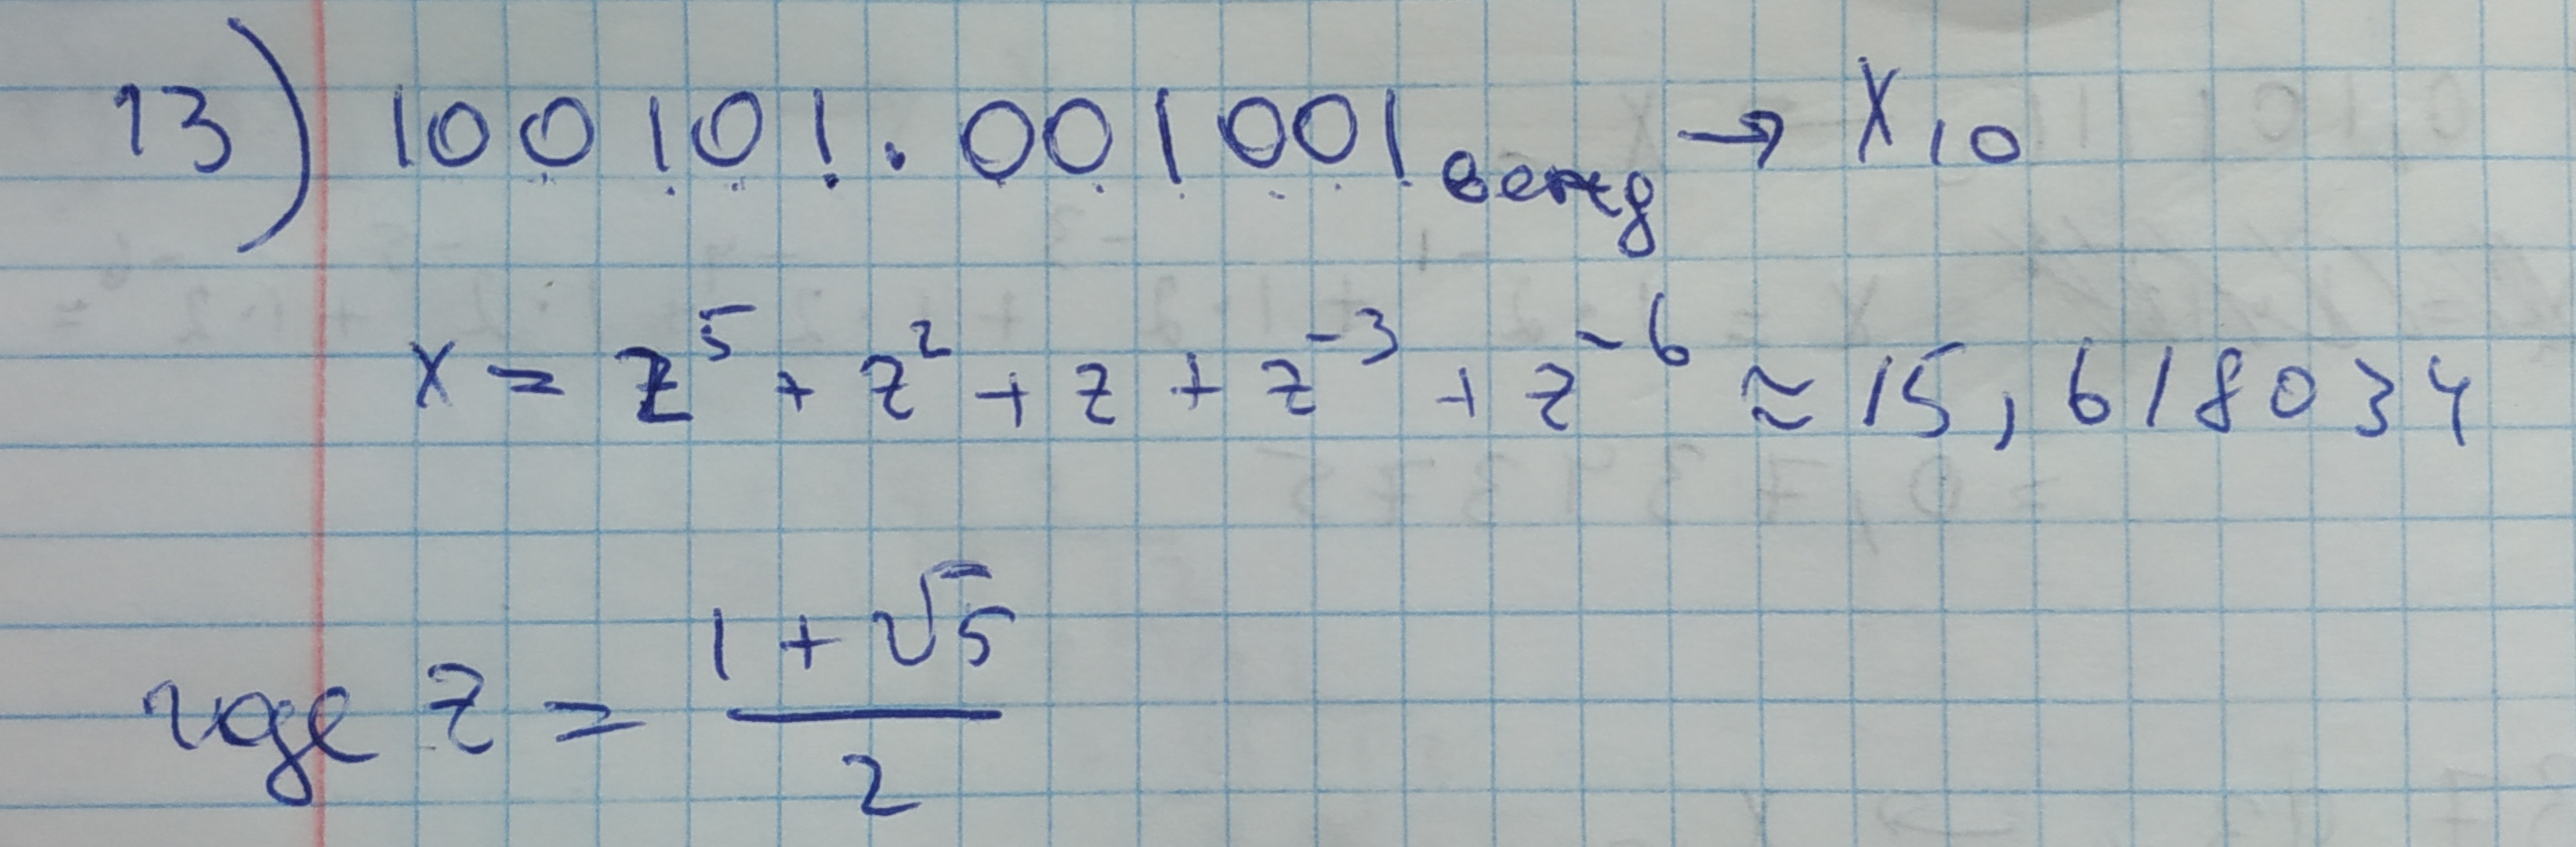 13) 100101.001001берг → X10
x = z^5 + z^2 + z + z^-3 + z^-6 ≈ 15,618034
где z = (1 + √5) / 2